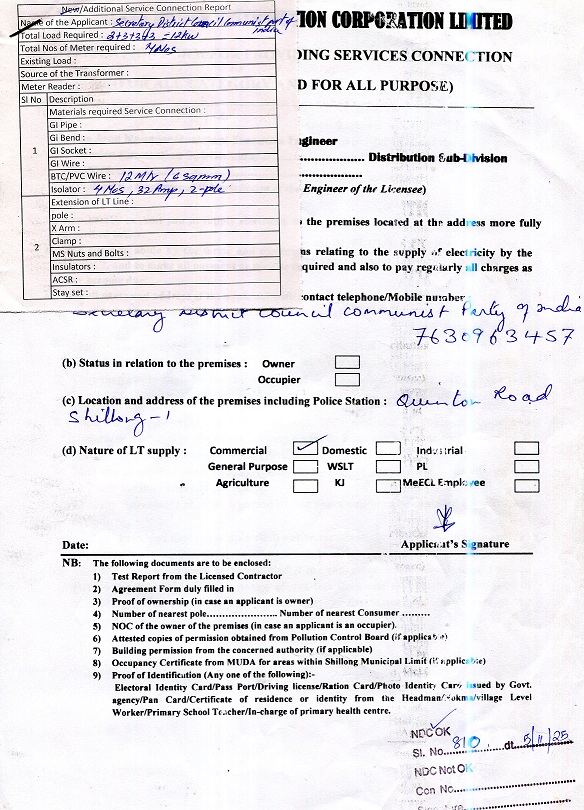 New/Additional Service Connection Report
Name of the Applicant : Secretary District Council Communist part of India
Total Load Required : 2+3+3+3 =12kw
Total Nos of Meter required : 4 Nos
Existing Load :
Source of the Transformer :
Meter Reader :
Sl No Description
Materials required Service Connection :
GI Pipe :
Gi Bend :
1 GI Socket :
GI Wire :
BTC/PVC Wire : 12 Mtr (6 sqmm)
Isolator : 4 Nos, 32 Amp, 2-pole
Extension of LT Line :
pole :
X Arm :
2 Clamp :
MS Nuts and Bolts :
Insulators :
ACSR :
Stay set :
TION CORPORATION LIMITED
DING SERVICES CONNECTION
D FOR ALL PURPOSE)
ngineer
.................... Distribution Sub-Division
....................
Engineer of the Licensee)
the premises located at the address more fully
ns relating to the supply of electricity by the
quired and also to pay regularly all charges as
contact telephone/Mobile number
Secretary District Council Communist Party of India
7630963457
(b) Status in relation to the premises : Owner
Occupier
(c) Location and address of the premises including Police Station : Quinton Road
Shillong-1
(d) Nature of LT supply : Commercial Domestic Industrial
General Purpose WSLT PL
Agriculture KJ MeECL Employee
Date: Applicant's Signature
NB: The following documents are to be enclosed:
1) Test Report from the Licensed Contractor
2) Agreement Form duly filled in
3) Proof of ownership (in case an applicant is owner)
4) Number of nearest pole...................... Number of nearest Consumer .........
5) NOC of the owner of the premises (in case an applicant is an occupier).
6) Attested copies of permission obtained from Pollution Control Board (if applicable)
7) Building permission from the concerned authority (if applicable)
8) Occupancy Certificate from MUDA for areas within Shillong Municipal Limit (if applicable)
9) Proof of Identification (Any one of the following):-
Electoral Identity Card/Pass Port/Driving license/Ration Card/Photo Identity Card issued by Govt.
agency/Pan Card/Certificate of residence or identity from the Headman/Nokma/village Level
Worker/Primary School Teacher/In-charge of primary health centre.
NDC OK
Sl. No. 810 dt. 5/11/25
NDC Not OK
Con No.